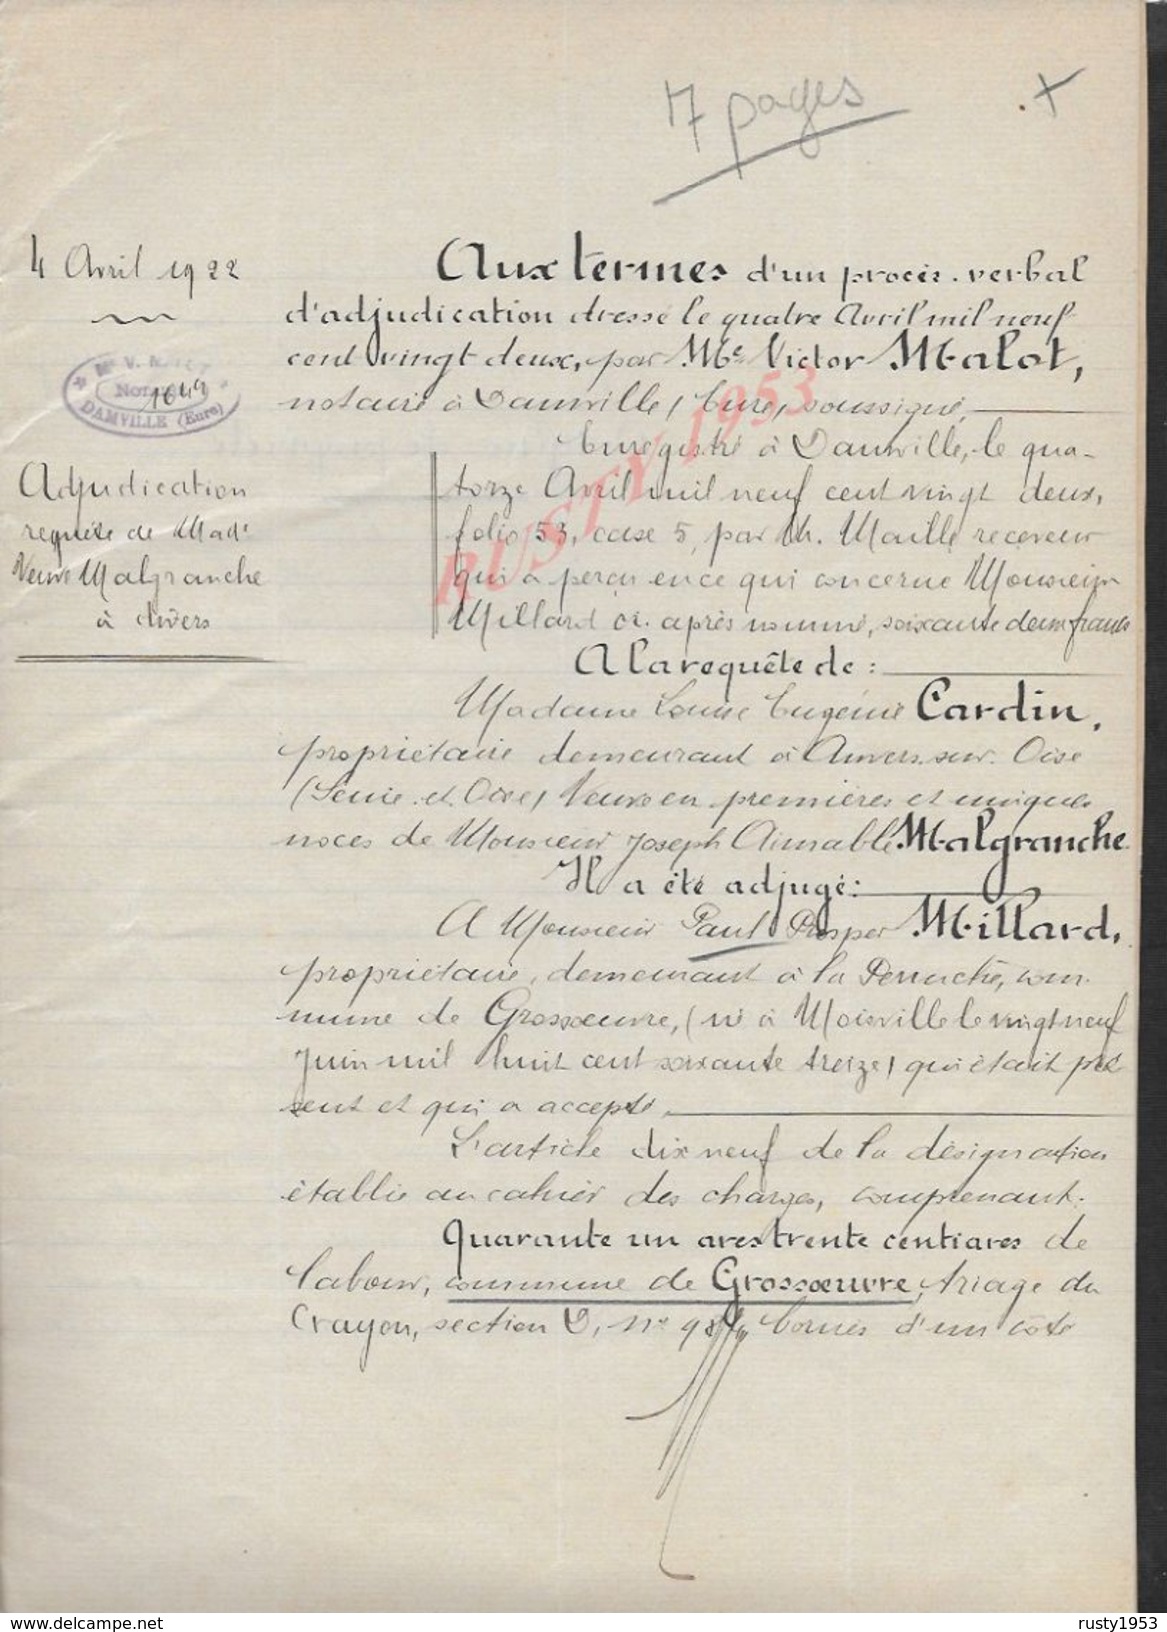 7 pages
+
4 Avril 1922
Me V. MALOT
NOTAIRE
1649
DAMVILLE (Eure)
Adjudication
requête de Made
Veuve Malgranche
à divers
Aux termes d'un procès-verbal
d'adjudication dressé le quatre Avril mil neuf
cent vingt deux, par Me Victor Malot,
notaire à Damville, (Eure) soussigné,
Enregistré à Damville, le qua-
torze Avril mil neuf cent vingt deux,
folio 53, case 5, par Ch. Maille receveur
qui a perçu en ce qui concerne Monsieur
Millard ci-après nommé, soixante deux francs
A la requête de :
Madame Louise Eugénie Cardin,
propriétaire demeurant à Auvers-sur-Oise
(Seine-et-Oise) Veuve en premières et uniques
noces de Monsieur Joseph Aimable Malgranche.
Il a été adjugé :
A Monsieur Paul Prosper Millard,
propriétaire, demeurant à la Perruche, com-
mune de Grossœuvre, (né à Moisville le vingt neuf
Juin mil huit cent soixante treize) qui était pré-
sent et qui a accepté,
L'article dix neuf de la désignation
établie au cahier des charges, comprenant :
Quarante un ares trente centiares de
labour, commune de Grossœuvre, triage du
Crayon, section D, no bornés d'un côté
RUSTY 1953
www.delcampe.net
rusty1953